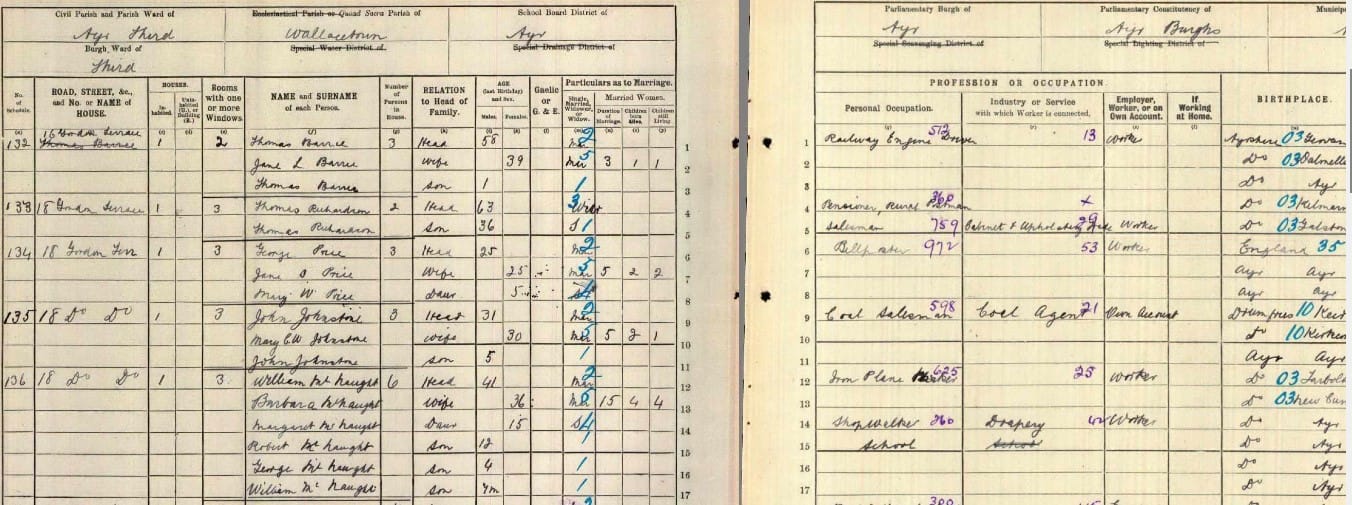 Civil Parish and Parish Ward of
Ayr Third
Burgh Ward of
Third
Ecclesiastical Parish or Quoad Sacra Parish of
Wallacetown
Special Water District of
School Board District of
Ayr
Special Drainage District of
Parliamentary Burgh of
Ayr
Special Scavenging District of
Parliamentary Constituency of
Ayr Burghs
Special Lighting District of
No. of Schedule.
ROAD, STREET, &c., and No. or NAME of HOUSE.
HOUSES.
Inhabited
Rooms with one or more Windows.
NAME and SURNAME of each Person.
Number of Persons in House.
RELATION to Head of Family.
AGE (last Birthday) and Sex.
Males. Females.
Gaelic or G. & E.
Particulars as to Marriage.
Single, Married, Widower, or Widow.
Married Women.
Duration of Marriage. Children born Alive. Children still Living
PROFESSION OR OCCUPATION
Personal Occupation. Industry or Service with which Worker is connected. Employer, Worker, or on Own Account. If Working at Home.
BIRTHPLACE.
132 16 Gordon Terrace Thomas Barrie 1 2 Thomas Barrie 3 Head 58 2 1 Railway Engine Driver 513 13 Worker Ayrshire 03
Jane L Barrie Wife 39 Mar 5 3 1 1 2 Do 03
Thomas Barrie son 1 1 3 Do Ayr
133 18 Gordon Terrace 1 3 Thomas Richardson 2 Head 63 3 Widr 4 Pensioner, Rural Postman 360 + Do 03
Thomas Richardson son 36 S 1 5 Salesman 759 Cabinet & Upholstery Trade 29 Worker Do 03 Galston
134 18 Gordon Terr 1 3 George Price 3 Head 25 2 6 Billposter 972 53 Worker England 35
Jane Price Wife 25 5 5 2 2 7 Ayr Ayr
Mary W Price Daur 5 4 8 Ayr Ayr
135 18 Do Do 1 3 John Johnstone 3 Head 31 2 9 Coal Salesman 598 Coal Agent 21 Own Account Dumfries 10
Mary E W Johnstone wife 30 Mar 5 5 2 1 10 Do 10
John Johnstone son 5 1 11 Ayr Ayr
136 18 Do Do 1 3 William McNaught 6 Head 41 Mar 2 12 Iron Plane 625 25 Worker Do 03
Barbara McNaught Wife 36 15 4 4 13 Do 03 New Cum
Margaret McNaught Daur 15 S 4 14 Shopwalker 260 Drapery Worker Do Ayr
Robert McNaught son 12 1 15 School School Do Ayr
George McNaught son 4 1 16 Do Ayr
William McNaught son 7m 1 17 Do Ayr